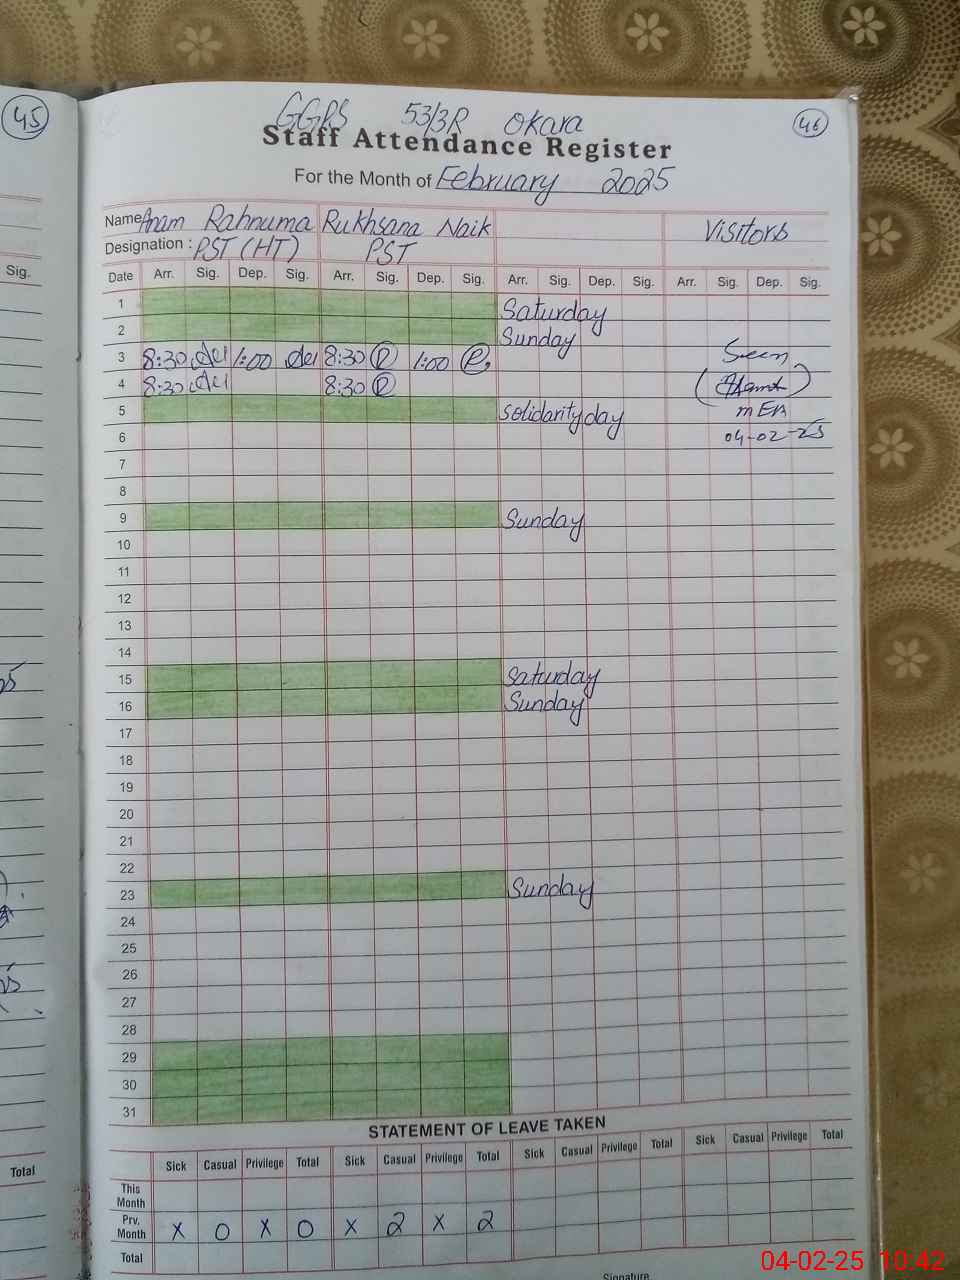 45
46
GGPS 53/3R Okara
Staff Attendance Register
For the Month of February 2025
Name Anam Rahnuma Rukhsana Naik Visitors
Designation : PST (HT) PST
Sig.
Date Arr. Sig. Dep. Sig. Arr. Sig. Dep. Sig. Arr. Sig. Dep. Sig. Arr. Sig. Dep. Sig.
1 Saturday
2 Sunday
3 8:30 1:00 8:30 R 1:00 R Seen
4 8:30 8:30 R
5 Solidarity day MEA
6 04-02-25
7
8
9 Sunday
10
11
12
13
14
15 Saturday
16 Sunday
17
18
19
20
21
22
23 Sunday
24
25
26
27
28
29
30
31
STATEMENT OF LEAVE TAKEN
Sick Casual Privilege Total Sick Casual Privilege Total Sick Casual Privilege Total Sick Casual Privilege Total
This Month
Prv. Month x 0 x 0 x 2 x 2
Total
Total
Signature
04-02-25 10:42